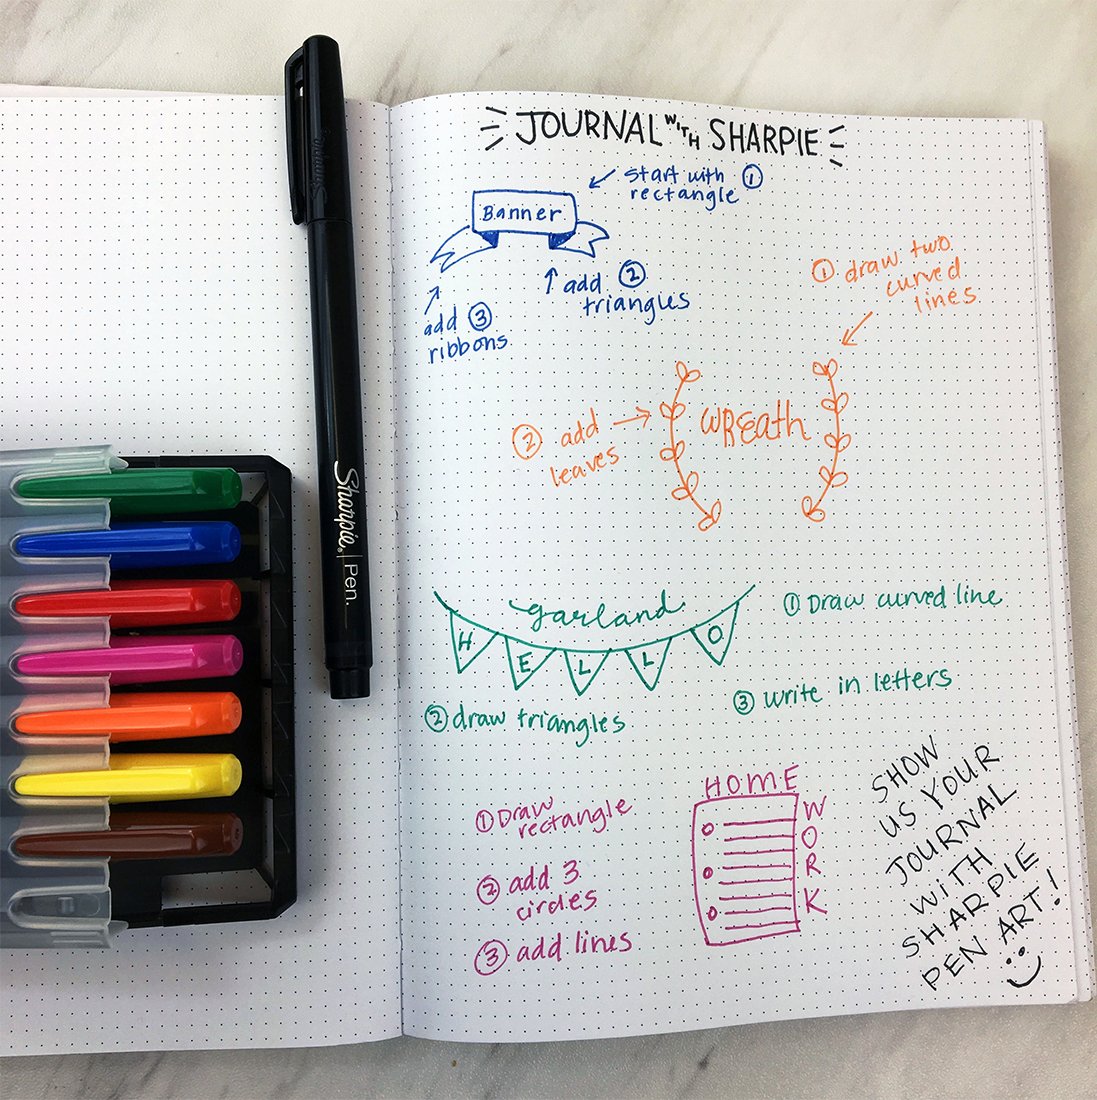 JOURNAL WITH SHARPIE
start with ①
rectangle
Banner
add ②
triangles
add ③
ribbons
① draw two
curved
lines
② add
leaves
WREath
garland
HELLO
① Draw curved line
② draw triangles
③ write in letters
HOME
WORK
① Draw
rectangle
② add 3
circles
③ add lines
SHOW
US YOUR
JOURNAL
WITH
SHARPIE
PEN ART!
Sharpie® | Pen.
Sharpie